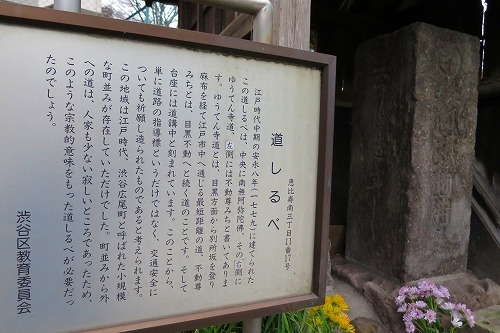 道しるべ
恵比寿南三丁目11番17号
江戸時代中期の安永八年(一七七九)に建てられた
この道しるべは、中央に南無阿弥陀佛、その右側に
ゆうてん寺道、左側には不動尊みちと書いてありま
す。ゆうてん寺道とは、目黒方面から別所坂を登り
麻布を経て江戸市中へ通じる最短距離の道、不動尊
みちとは、目黒不動へと続く道のことです。そして
台座には道講中と刻まれています。このことから、
単に道路の指導標というだけではなく、交通安全に
ついても祈願し造られたものであると考えられます。
この地域は江戸時代、渋谷広尾町と呼ばれた小規模
な町並みが存在していただけでした。町並みから外
への道は、人家も少ない寂しいところであったため、
このような宗教的意味をもった道しるべが必要だっ
たのでしょう。
渋谷区教育委員会